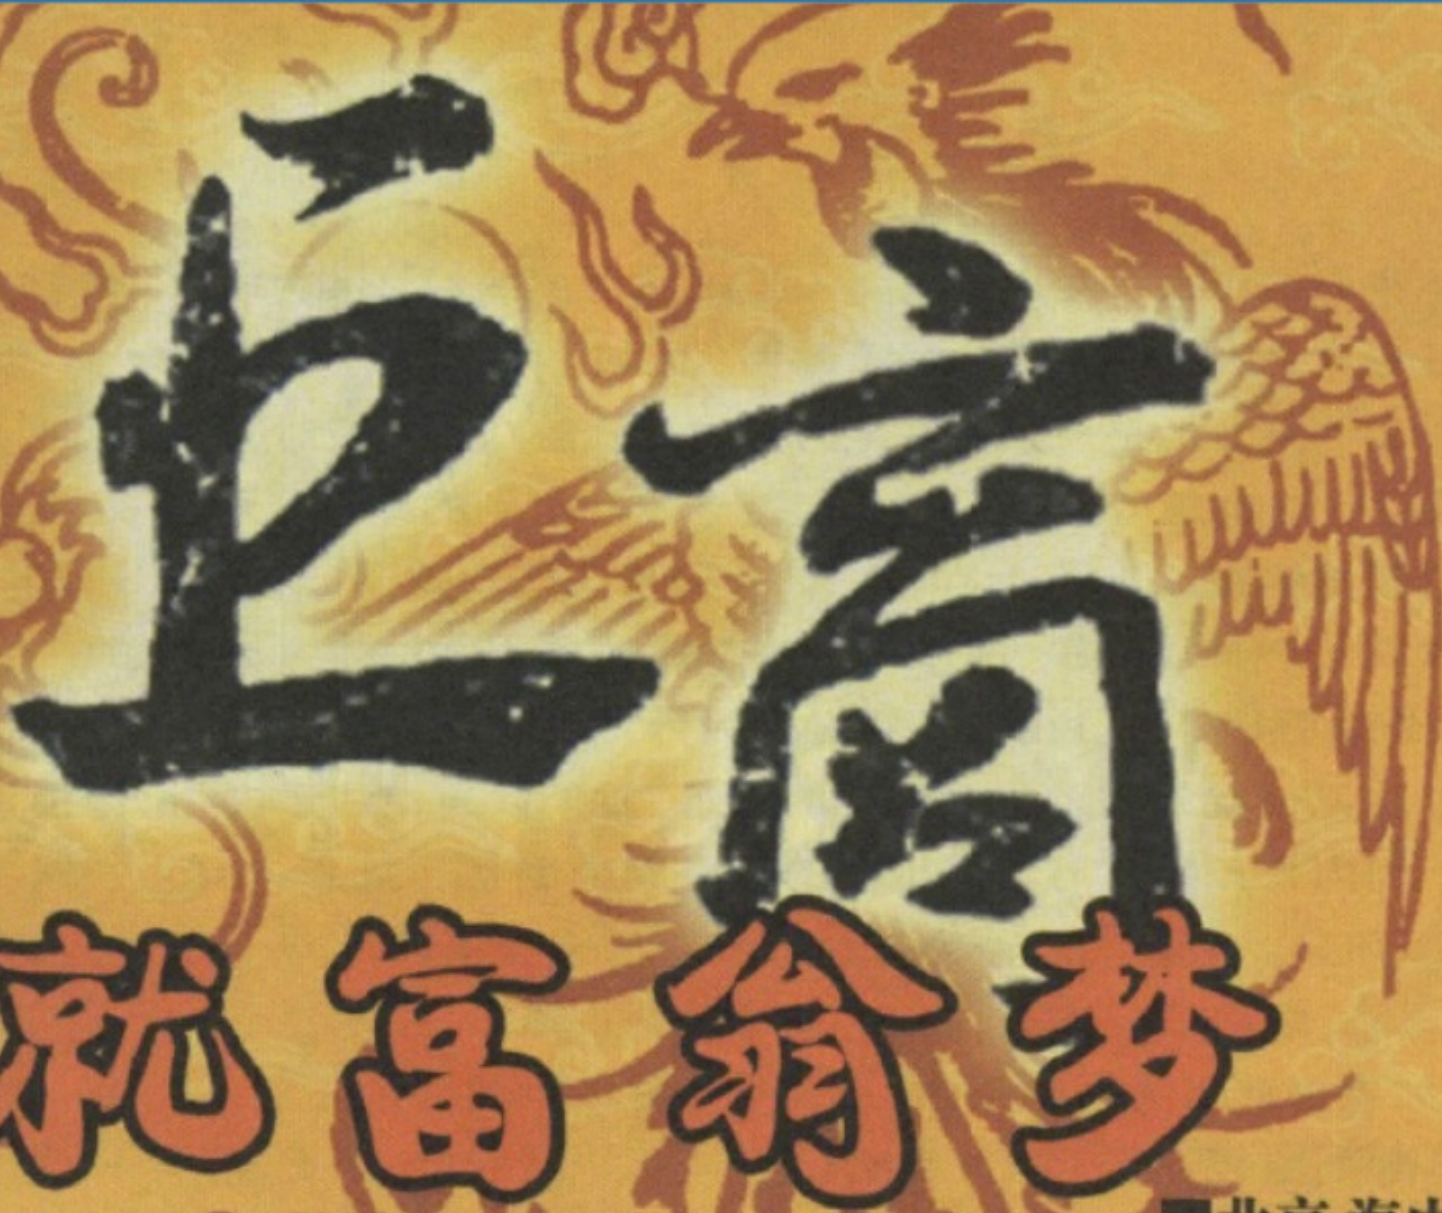 巨商
就富翁梦